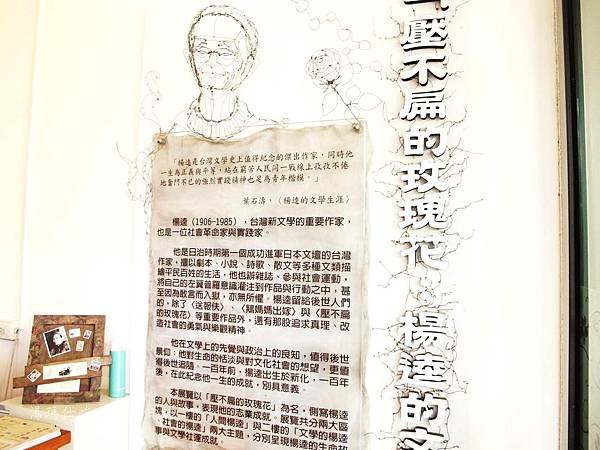 壓不扁的玫瑰花：楊逵的文
「楊逵是台灣文學史上值得紀念的傑出作家，同時他
一生為正義與平等，站在窮苦人民同一戰線上孜孜不倦
地奮鬥不已的強烈實踐精神也足為青年楷模。」
葉石濤，〈楊逵的文學生涯〉
楊逵（1906-1985），台灣新文學的重要作家，
也是一位社會革命家與實踐家。
他是日治時期第一個成功進軍日本文壇的台灣
作家，擅以劇本、小說、詩歌、散文等多種文類描
繪平民百姓的生活，他也辦雜誌、參與社會運動，
將自己的左翼普羅意識灌注到作品與行動之中，甚
至因為敢言而入獄，亦無所懼。楊逵留給後世人們
的，除了〈送報伕〉、〈鵝媽媽出嫁〉與〈壓不扁
的玫瑰花〉等重要作品外，還有那股追求真理、改
造社會的勇氣與樂觀精神。
他在文學上的先覺與政治上的良知，值得後世
景仰；他對生命的恬淡與對文化社會的想望，更值
得後世追隨。一百年前，楊逵出生於新化，一百年
後，在此紀念他一生的成就，別具意義。
本展覽以「壓不扁的玫瑰花」為名，側寫楊逵
的人與故事，表現他的志業成就。展覽共分兩大區
塊，以一樓的「人間楊逵」與二樓的「文學的楊逵
、社會的楊逵」兩大主題，分別呈現楊逵的生命故
事與文學社運成就。